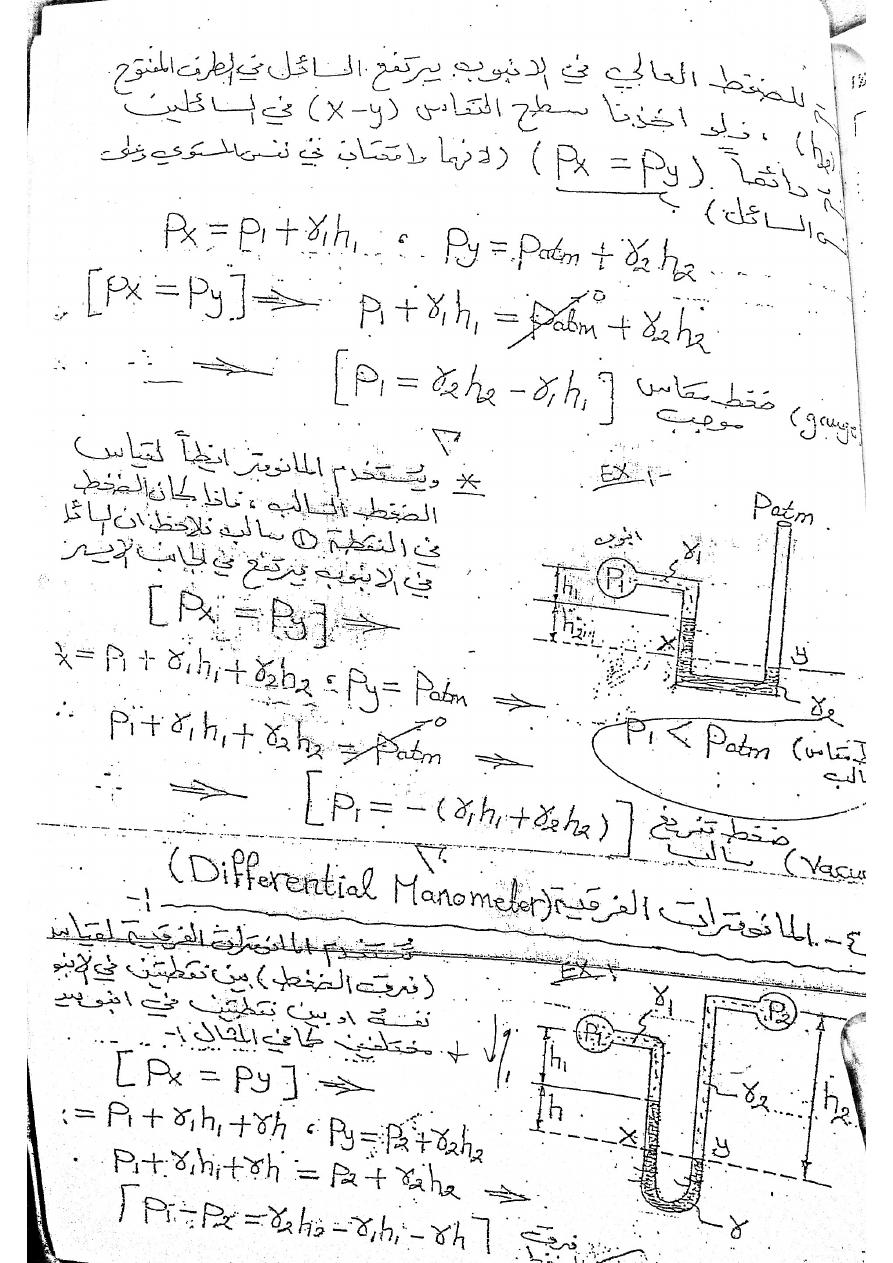 للضغط العالي في الانبوب يرتفع السائل في الطرف المفتوح
(h2) ، فلو اخذنا سطح التماس (x-y) في السائلين
دائماً (Px = Py) (لانهما واقعتان في نفس المستوي وعلى
السائل)
Px = P1 + γ1h1 ، Py = Patm + γ2h2
[Px = Py] ⇒ P1 + γ1h1 = Patm 0 + γ2h2
∴ ⇒ [P1 = γ2h2 - γ1h1] ضغط مقاس موجب (gauge
* ويستخدم المانومتر ايظاً لقياس
الضغط السالب ، فاذا كان الضغط
في النقطة ① سالب نلاحظ ان السائل
في الانبوب يرتفع في الجانب الايسر
[Px = Py] ⇒
x = P1 + γ1h1 + γ2h2 ، Py = Patm ⇒
∴ P1 + γ1h1 + γ2h2 = Patm 0 ⇒
∴ ⇒ [P1 = -(γ1h1 + γ2h2)] ضغط تفريغ سالب (Vacuu
EX:-
Patm
انبوب
P1
γ1
h1
h2
x
y
γ2
P1 < Patm (مقاس
سالب
٤- المانومترات الفرقية (Differential Manometer) :-
تستخدم المانومترات الفرقية لقياس
(فرق الضغط) بين نقطتين في الانبو
نفسة او بين نقطتين في انبوبين
مختلفين كما في المثال :-
[Px = Py] ⇒
:= P1 + γ1h1 + γh ، Py = P2 + γ2h2
P1 + γ1h1 + γh = P2 + γ2h2 ⇒
[P1 - P2 = γ2h2 - γ1h1 - γh] فرق
EX:
P1
γ1
P2
h1
h
γ2
h2
x
y
γ